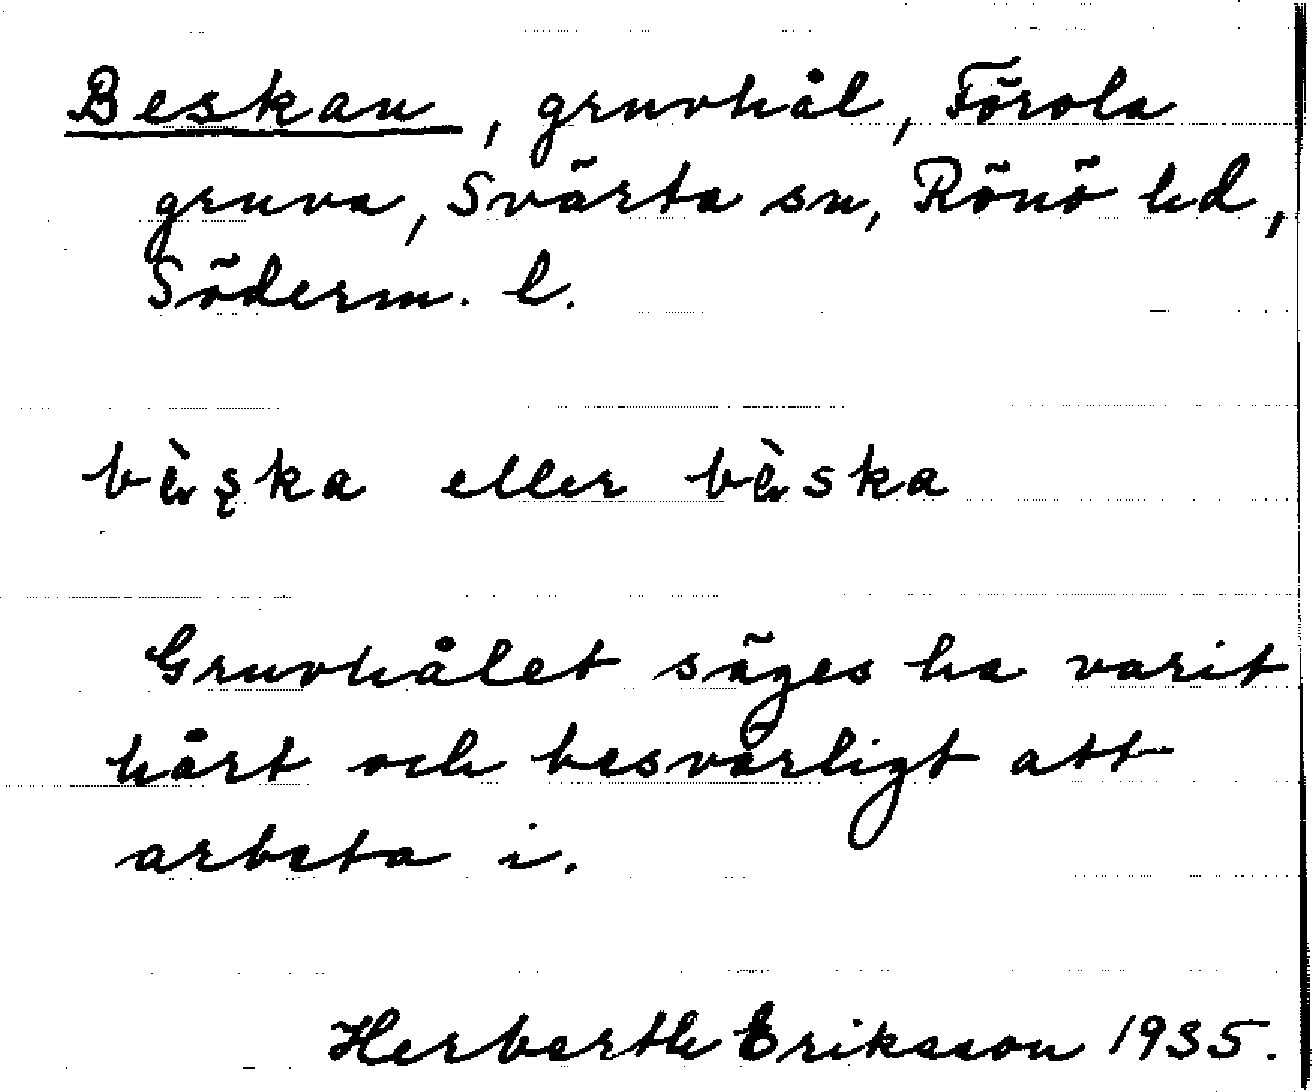 Beskan, gruvhål, Förola
gruva, Svärta sn, Rönö hd,
Söderm. l.
bèska eller bèska
Gruvhålet säges ha varit
hårt och besvärligt att
arbeta i.
Herberth Eriksson 1935.